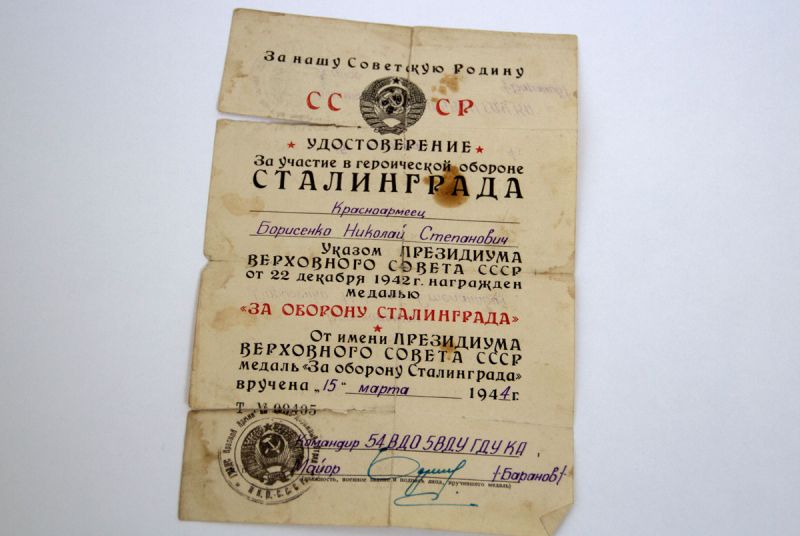 За нашу Советскую Родину
СС СР
УДОСТОВЕРЕНИЕ
За участие в героической обороне
СТАЛИНГРАДА
Красноармеец
Борисенко Николай Степанович
Указом ПРЕЗИДИУМА
ВЕРХОВНОГО СОВЕТА СССР
от 22 декабря 1942 г. награжден
медалью
«ЗА ОБОРОНУ СТАЛИНГРАДА»
От имени ПРЕЗИДИУМА
ВЕРХОВНОГО СОВЕТА СССР
медаль «За оборону Сталинграда»
вручена „15" марта 1944 г.
Т №
Командир 54 ВДО 5ВДУ ГДУ КА
Майор /Баранов/
(должность, военное звание и подпись лица, вручившего медаль)